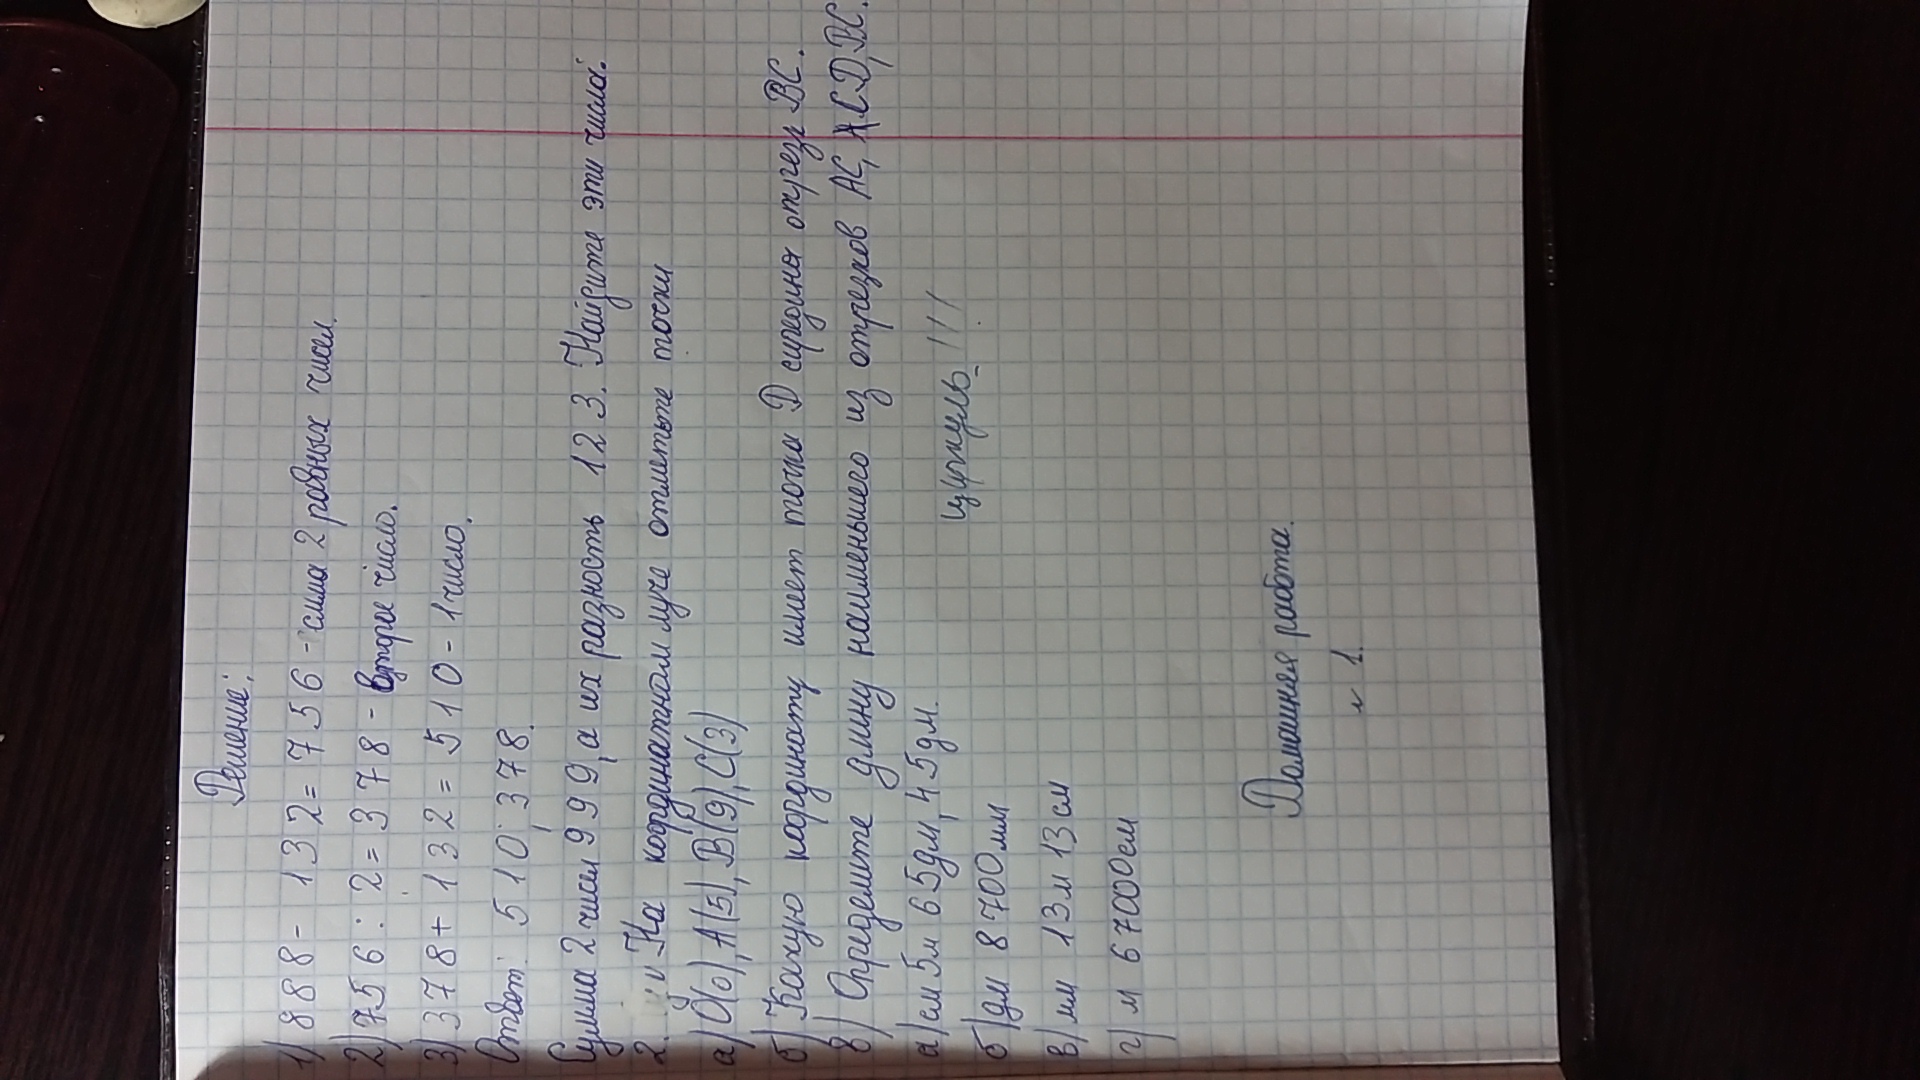 Решение:
1) 888 - 132 = 756 - сумма 2 равных чисел.
2) 756 : 2 = 378 - второе число.
3) 378 + 132 = 510 - 1 число.
Ответ: 510; 378.
Сумма 2 чисел 999, а их разность 123. Найдите эти числа.
2. На координатном луче отметьте точки
а) О(0), А(5), В(9), С(3)
б) Какую координату имеет точка D середина отрезк ВС.
в) Определите длину наименьшего из отрезков АС, АСD, ВС.
а) см 5м 65дм, 45дм.
циркуль !!!
б) дм 8700мм
в) мм 13м 13см
г) м 67000см
Домашняя работа.
№ 1.